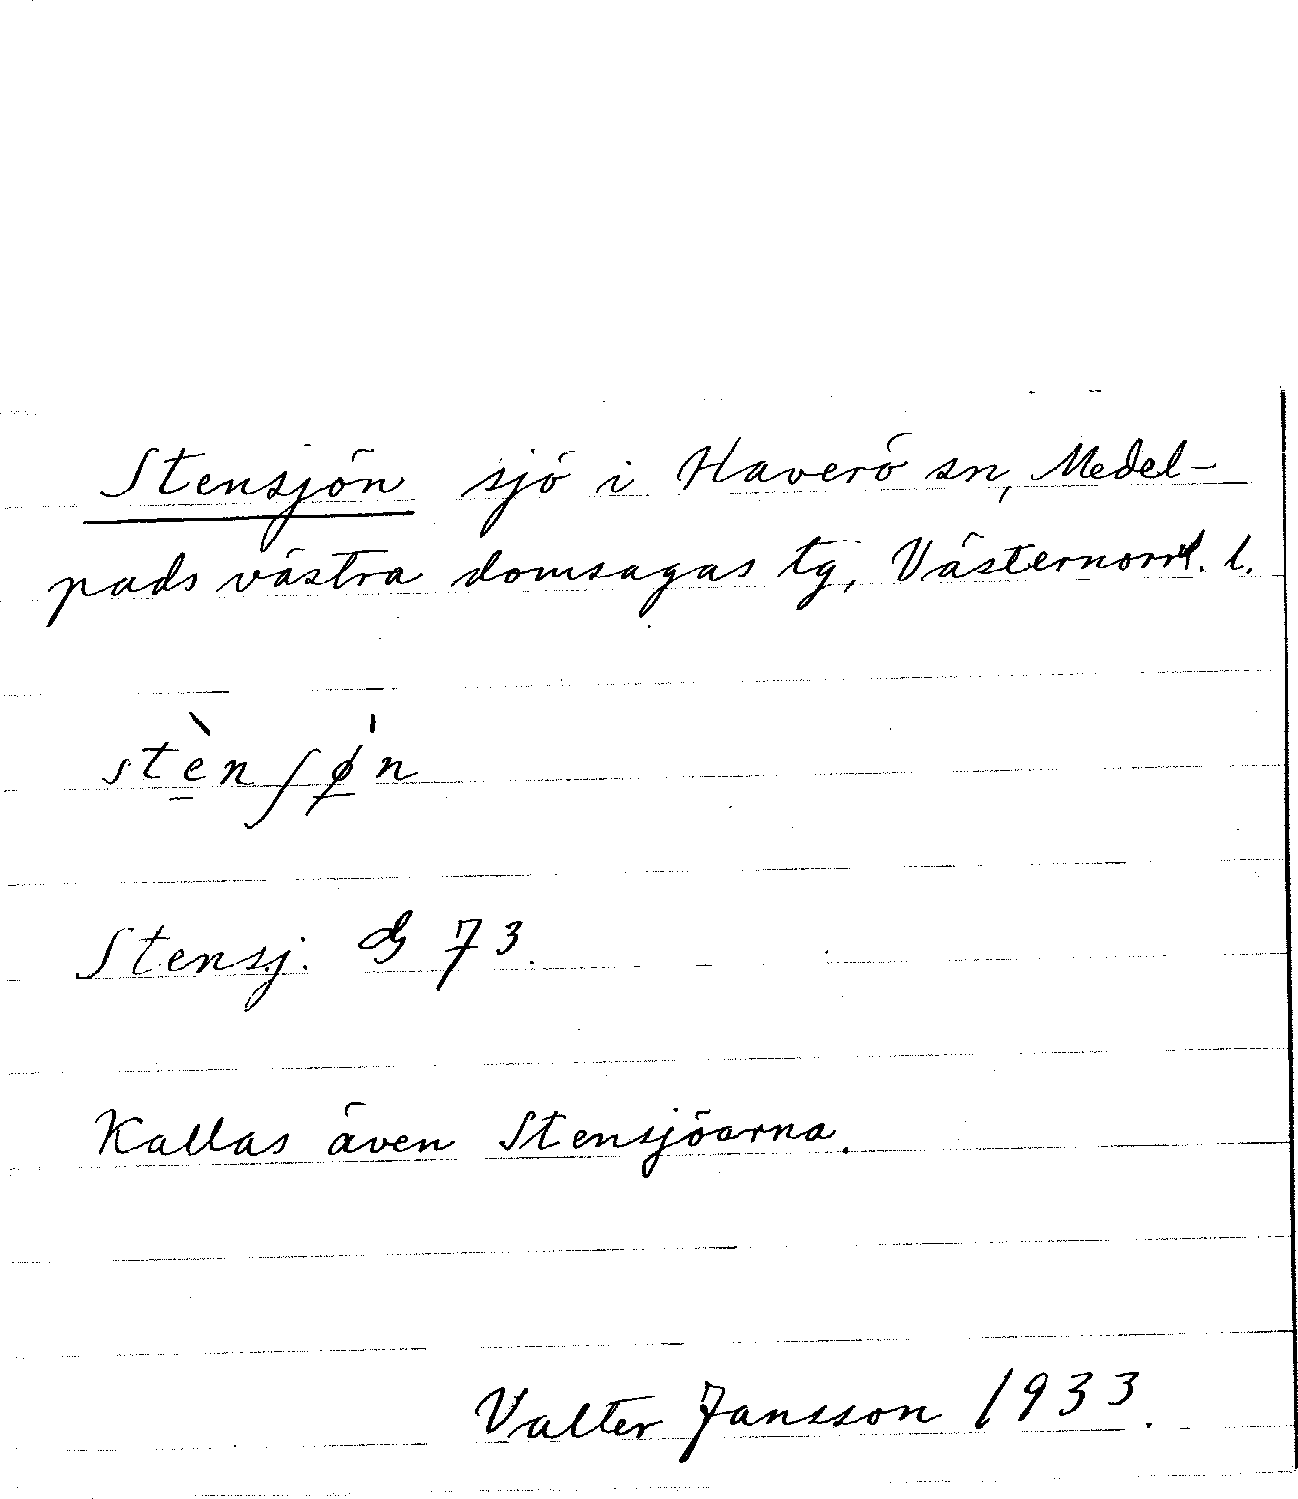 Stensjön sjö i Haverö sn, Medel-
pads västra domsagas tg, Västernorrl. l.
stènʃø̀n
Stensj. G 73.
Kallas även Stensjöarna.
Valter Jansson 1933.